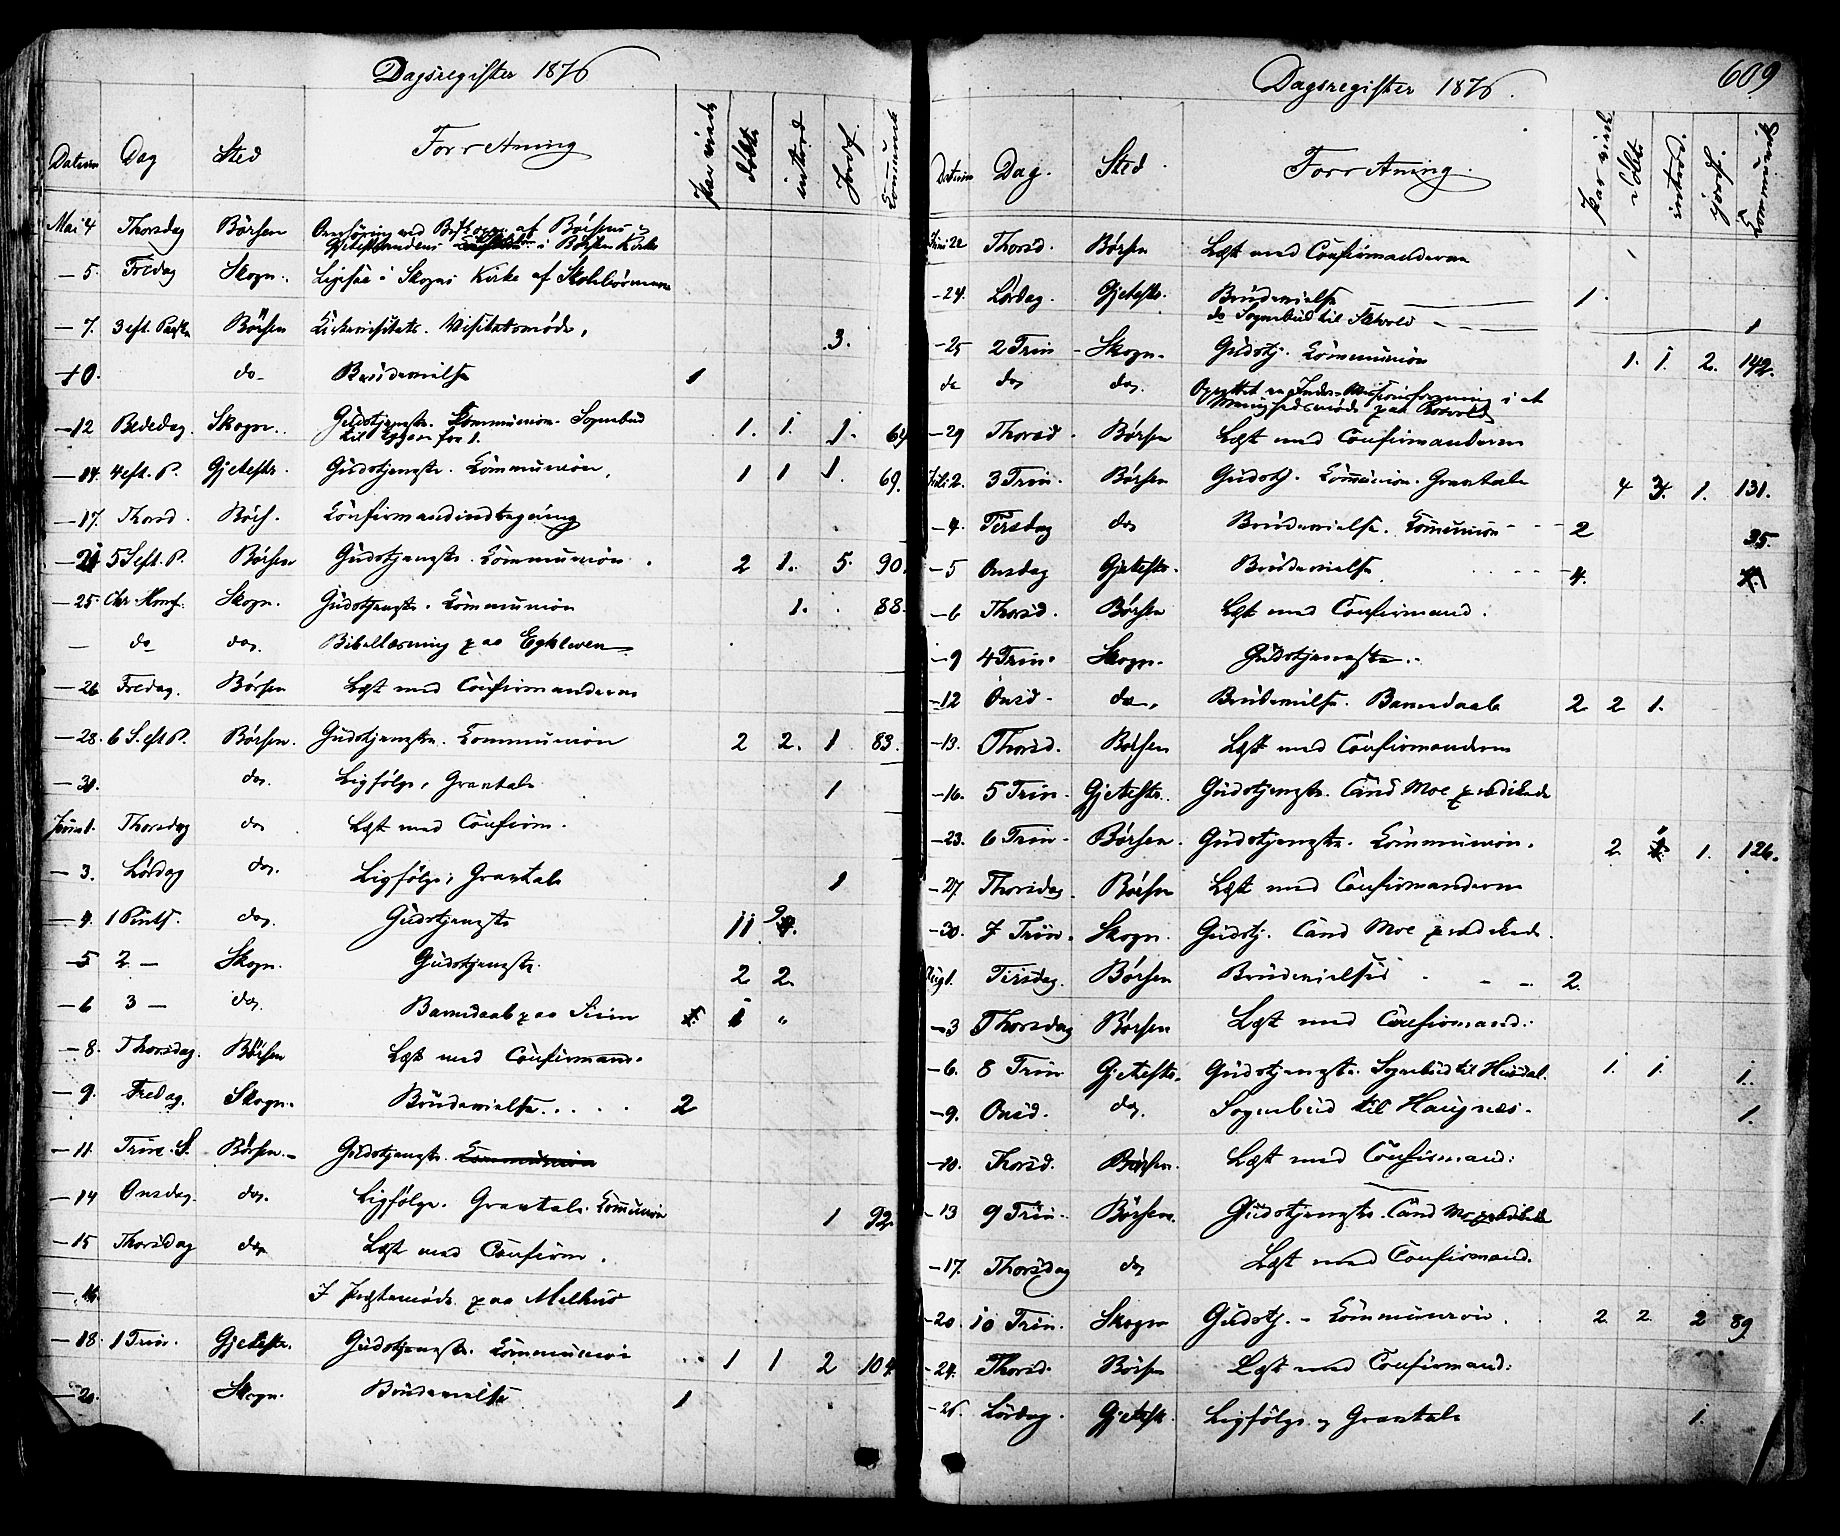 Dagsregister 1876
Datum Dag Sted Forretning par viede døbte introd jordf. Communic
Mai 4 Thorsdag Børsen ved Biskopen af Børsens
i Børsen Kirke
— 5. Fredag Skogn. Ligesaa i Skogns Kirke af Skolebørnene
— 7. 3 eft. Paaske Børsen Kirkevisitats. Visitatsmøde. 3.
10. do Brudevielse 1
— 12 Bededag. Skogn. Gudstjeneste. Kommunion. Sognebud
til for 1. 1. 1. 1. 64
— 14. 4 eft. P. Gjetestr. Gudstjeneste. Kommunion. 1 1 1. 69.
— 17. Thorsd. Børs. Confirmandindtegning
— 21 5 S eft. P. Børsen Gudstjeneste. Kommunion. 2 1. 5. 90.
— 25. Chr. Himf. Skogn. Gudstjeneste. Kommunion 1. 88.
— do do. Bibellæsning paa Eggkleven
— 26 Fredag. Børsen Læst med Confirmanderne
— 28. 6 S. eft P. Børsen. Gudstjeneste. Kommunion 2 2. 1 83.
— 30. do. Ligfølge, Gravtale. 1
Juni 1. Thorsdag do Læst med Confirm.
— 3. Lørdag do. Ligfølge, Gravtale 1
— 4. 1 Pints. do. Gudstjeneste 11 9
— 5 2 — Skogn. Gudstjeneste. 2 2.
— 6 3 — do. Barnedaab paa 1 "
— 8. Thorsdag. Børsen Læst med Confirmand.
— 9. Fredag. Skogn. Brudevielse. . . . . 2
— 11. Trin. S. Børsen. Gudstjeneste. Kommunion
— 14 Onsdag. do. Ligfølge. Gravtale. Kommunion 1 92.
— 15 Thorsdag do. Læst med Confirm.
— 16. I Præstemøde paa Melhus
— 18. 1 Trin. Gjetestr. Gudstjeneste. Kommunion 1 1 2 104.
— 20. Skogn. Brudevielse 1
Dagsregister 1876.
609
Datum Dag. Sted. Forretning. par viede døbte introd. jordf. Kommunik
Juni 22 Thorsd. Børsen Læst med Confirmanderne
— 24. Lørdag. Gjetestr. Brudevielse 1.
do Sognebud til 1
— 25 2 Trin Skogn. Gudstj. Kommunion 1. 1. 2. 142.
do do do. Oprettet en Indre-Missionsforening i et
Menighedsmøde paa
— 29 Thorsd. Børsen Læst med Confirmanderne
Juli 2. 3 Trin. Børsen Gudstj. Kommunion. Gravtale 4 3. 1. 131.
— 4. Tirsdag do Brudevielse. Kommunion 2 35.
— 5 Onsdag Gjetestr. Brudevielse 4.
— 6 Thorsd. Børsen Læst med Confirmand.
— 9 4 Trin. Skogn. Gudstjeneste.
— 12 Onsd. do. Brudevielse. Barnedaab 2 2 1.
— 13. Thorsd. Børsen Læst med Confirmanderne
— 16. 5 Trin. Gjetestr. Gudstjeneste. Cand Moe prædikede
— 23. 6 Trin. Børsen. Gudstjeneste. Kommunion. 2 1. 126.
— 27 Thorsdag. Børsen Læst med Confirmanderne
— 30. 7 Trin. Skogn. Gudstj. Cand Moe prædikede.
Aug 1. Tirsdag. Børsen Brudevielse 2.
— 3 Thorsdag Børsen Læst med Confirmand.
— 6. 8 Trin Gjetestr. Gudstjeneste. Sognebud til Husdal. 1. 1. 1.
— 9. Onsd. do. Sognebud til Haugnæs. 1.
— 10. Thorsd. Børsen. Læst med Confirmand:
— 13 9 Trin. Børsen. Gudstjeneste. Cand Moe prædikede
— 17. Thorsdag do Læst med Confirmand.
— 20. 10 Trin. Skogn Gudstj. - Kommunion. 2 2. 2 89
— 24. Thorsd. Børsen Læst med Confirmand:
— 26. Lørdag. Gjetestr. Ligfølge og Gravtale 1.